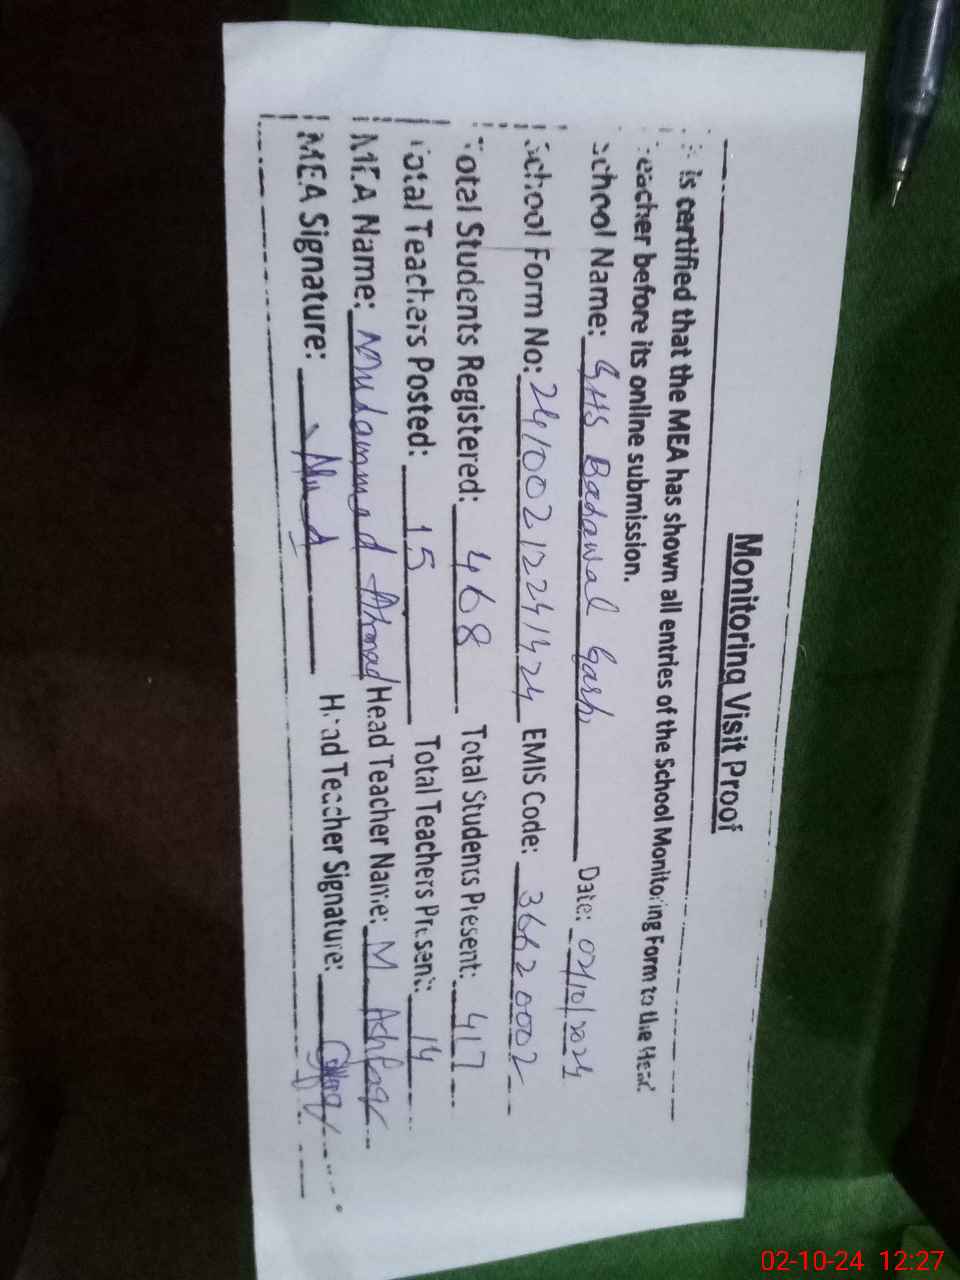 Monitoring Visit Proof
is certified that the MEA has shown all entries of the School Monitoring Form to the Head
Teacher before its online submission.
School Name: GHS Badawal Garh Date: 02/10/2024
School Form No: 24100212241424 EMIS Code: 36620002
Total Students Registered: 468 Total Students Present: 417
Total Teachers Posted: 15 Total Teachers Present: 14
MEA Name: Muhammad Ahmad Head Teacher Name: M. Ashfaq
MEA Signature: Head Teacher Signature:
02-10-24 12:27